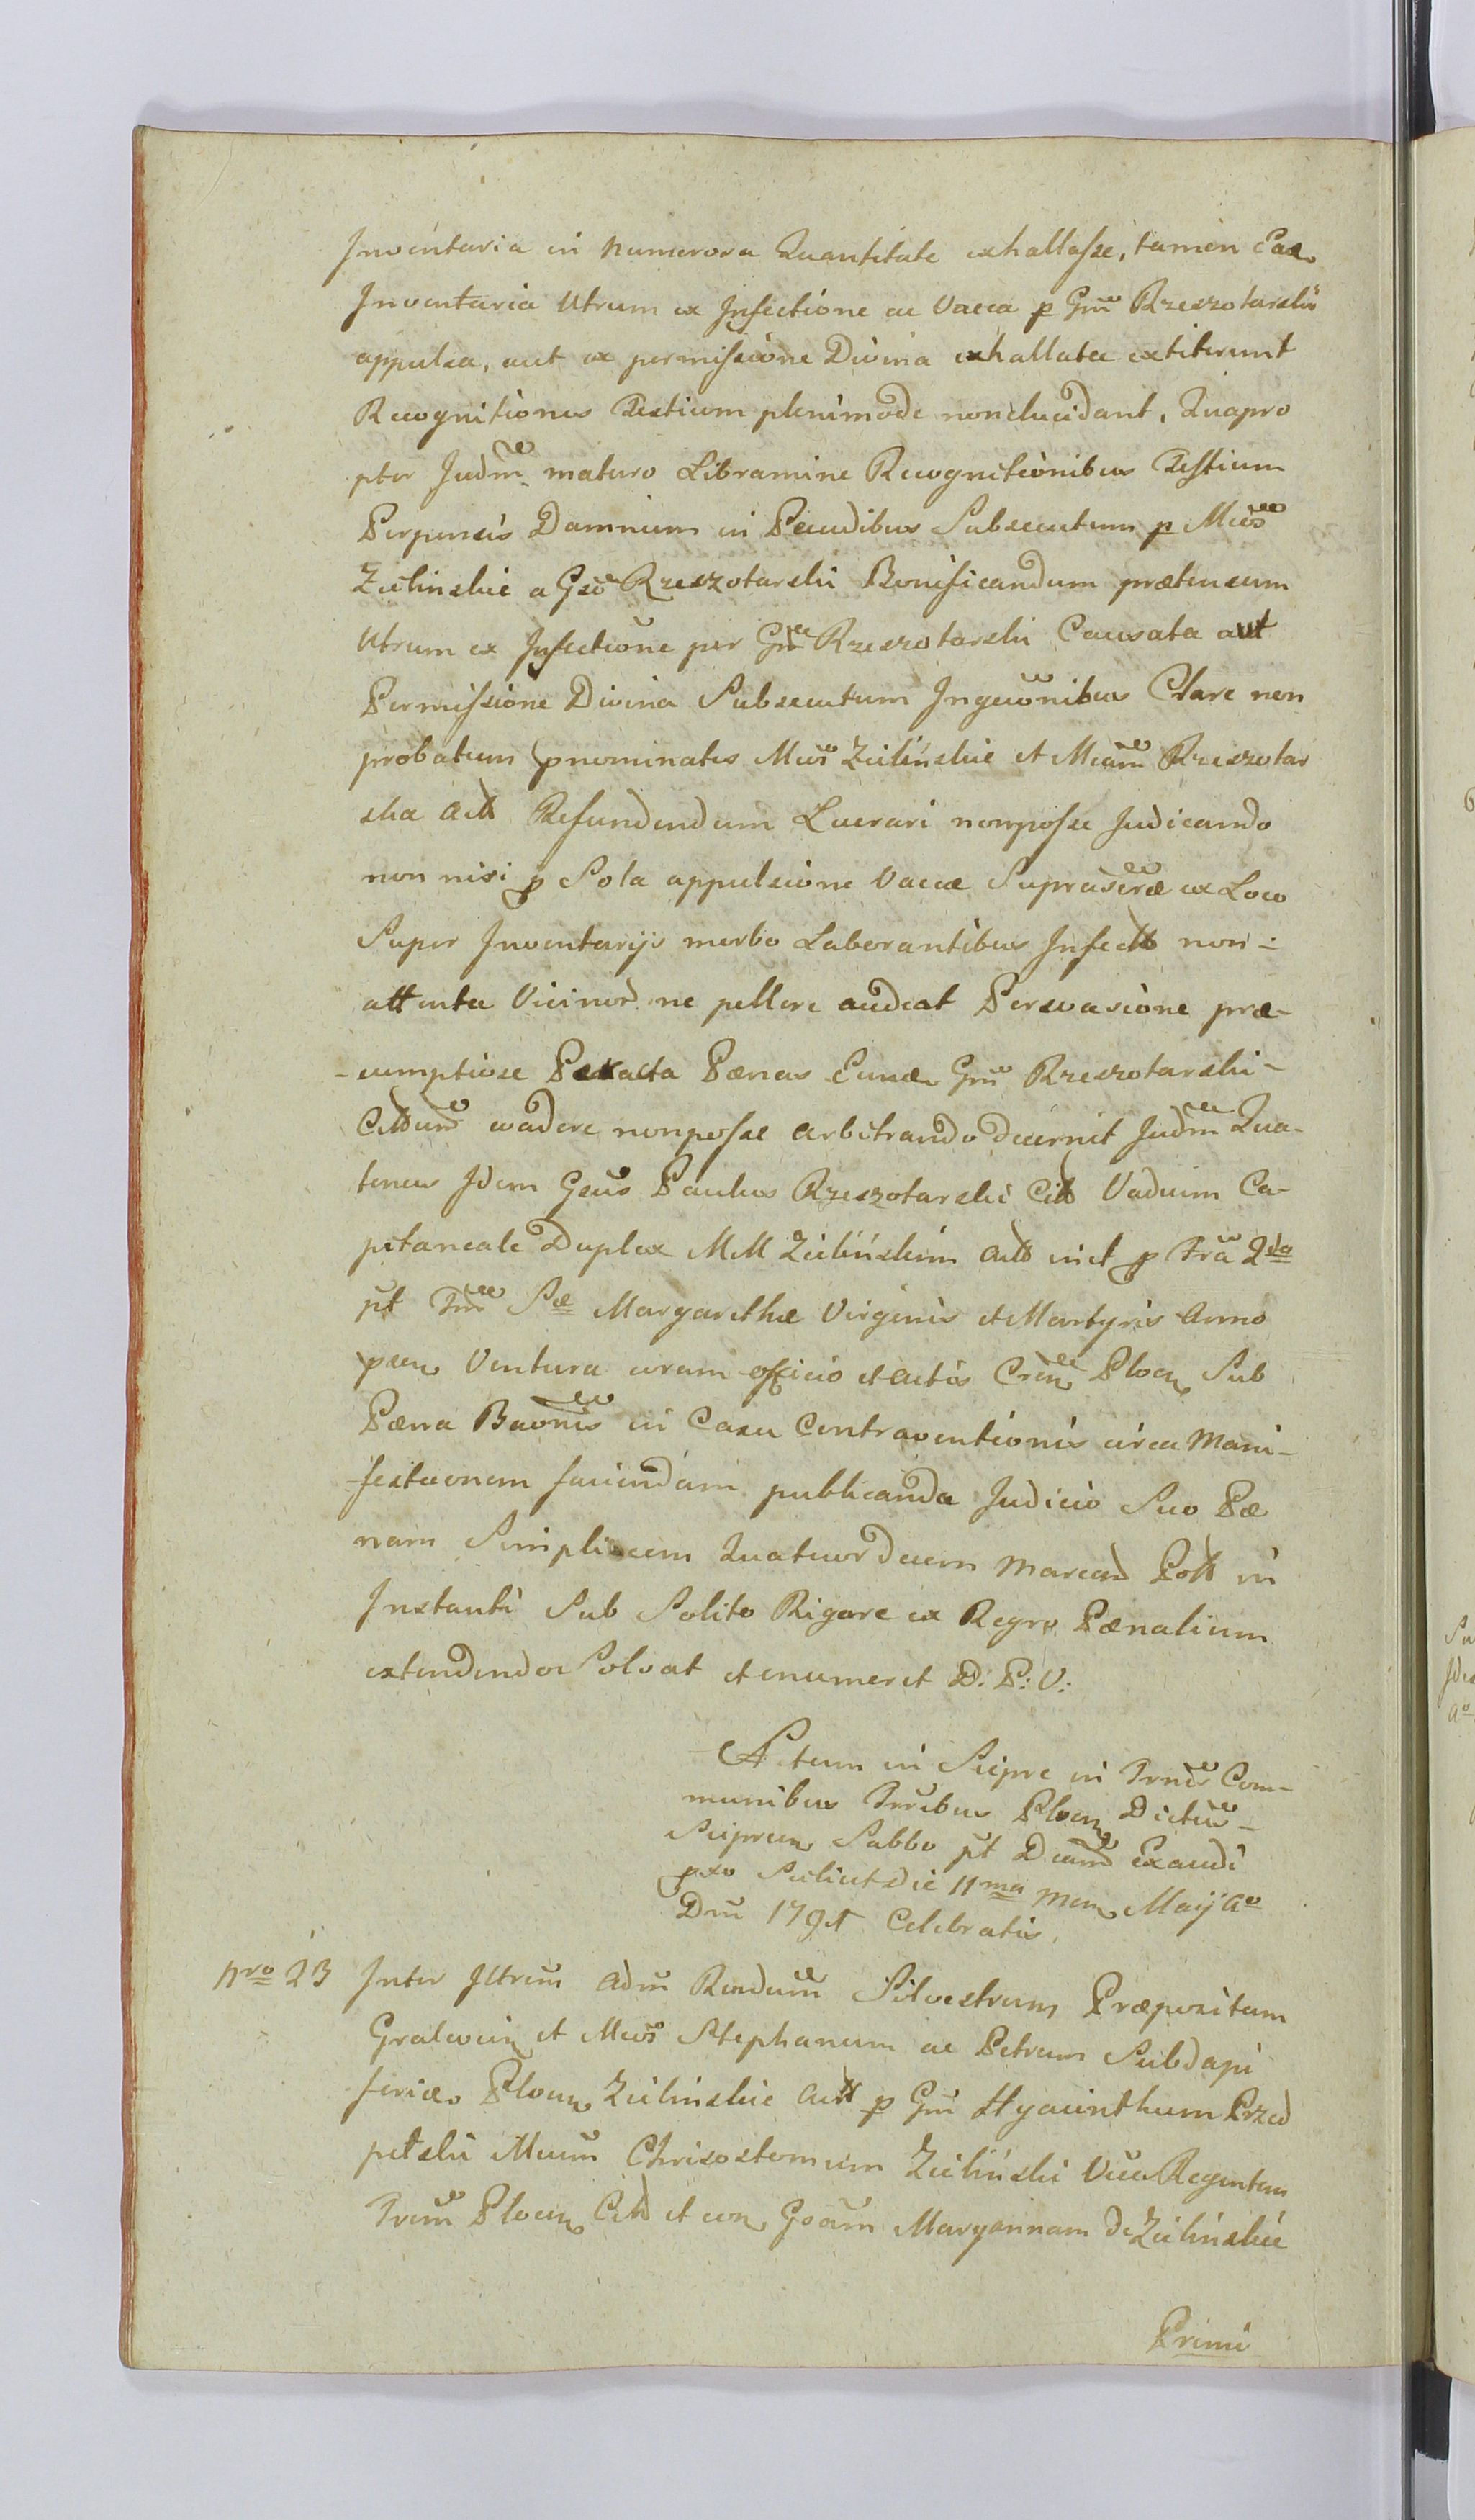 Inventaria in numerosa Quantitate exhallasse, tamen Eae
Inventaria Utrum ex Infectione ac Vacca p Gnu Rzeszotarski
appulsa, aut ex permissione Divina exhallata extiterunt
Recognitiones Testium plenimode non elucidant, Quapro
pter Judm maturo Libramine Recognitionibus Testium
Perpensis Damnum in Pecudibus Subsecutum p Mcos
Zielinskie a Gso Rzeszotarski Bonificandum prætensum
Utrum ex Infectione per Gnu Rzeszotarski Causata aut
Permissione Divina Subsecutum Inqeuonibus Clare non
probatum pnominatis Mcos Zieliński et Mcam Rzeszotar
ska Actt Refundendum Lucrari nonposse Judicando
non nisi p Sola appulsione Vaccæ Suprascræ ex Loco
Super Inventarijs morbo Laborantibus Infectt non-
attenta Vicinor ne pellere audeat Persvasione præ-
-sumptiose Peracta Pænas Eund Gnu Rzeszotarski-
Cittum evadere nonposse arbitrando decernit Judm Qua-
tenus Idem Gsus Paulus Rzeszotarski Citt Vadium Ca-
pitaneale Duplex MM Zielińskim Actt in et p Fra 2da
pt Fm Sæ Margarethæ Virginis et Martyris Anno
pæn Ventura coram officio et actis Cren Plocen Sub
Pæna Baonis in Casu Contraventionis circa Mani-
-festaeonem faciendam publicanda Judicio Suo Pæ
nam Simplicem Quatuordecim Marcar Pott in
Instanti Sub Solito Rigore ex Regro Pænalium
extendendor Solvat et enumeret D: P: V:
Actum in Sierpc in Trnis Com-
munibus Trribus Plocen Dictus-
Sieprcen Sabbo pt Dcam Exaudi
pxo Scilicet die 11ma Men Maij Ao
Dni 1791 Celebratis.
Nro 23 Inter Illrem Adm Rendum Silvestrum Præpositum
Gralevien et Mcos Stephanum ac Petrum Subdapi
feride Plocen Zielinskie Actt p Gnu Hyacinthum Przed
petski Mcum Chrisostomum Zieliński Vice Regentem
Trem Plocen Citt et con Gsam Maryannam de Zielińskie
Primi